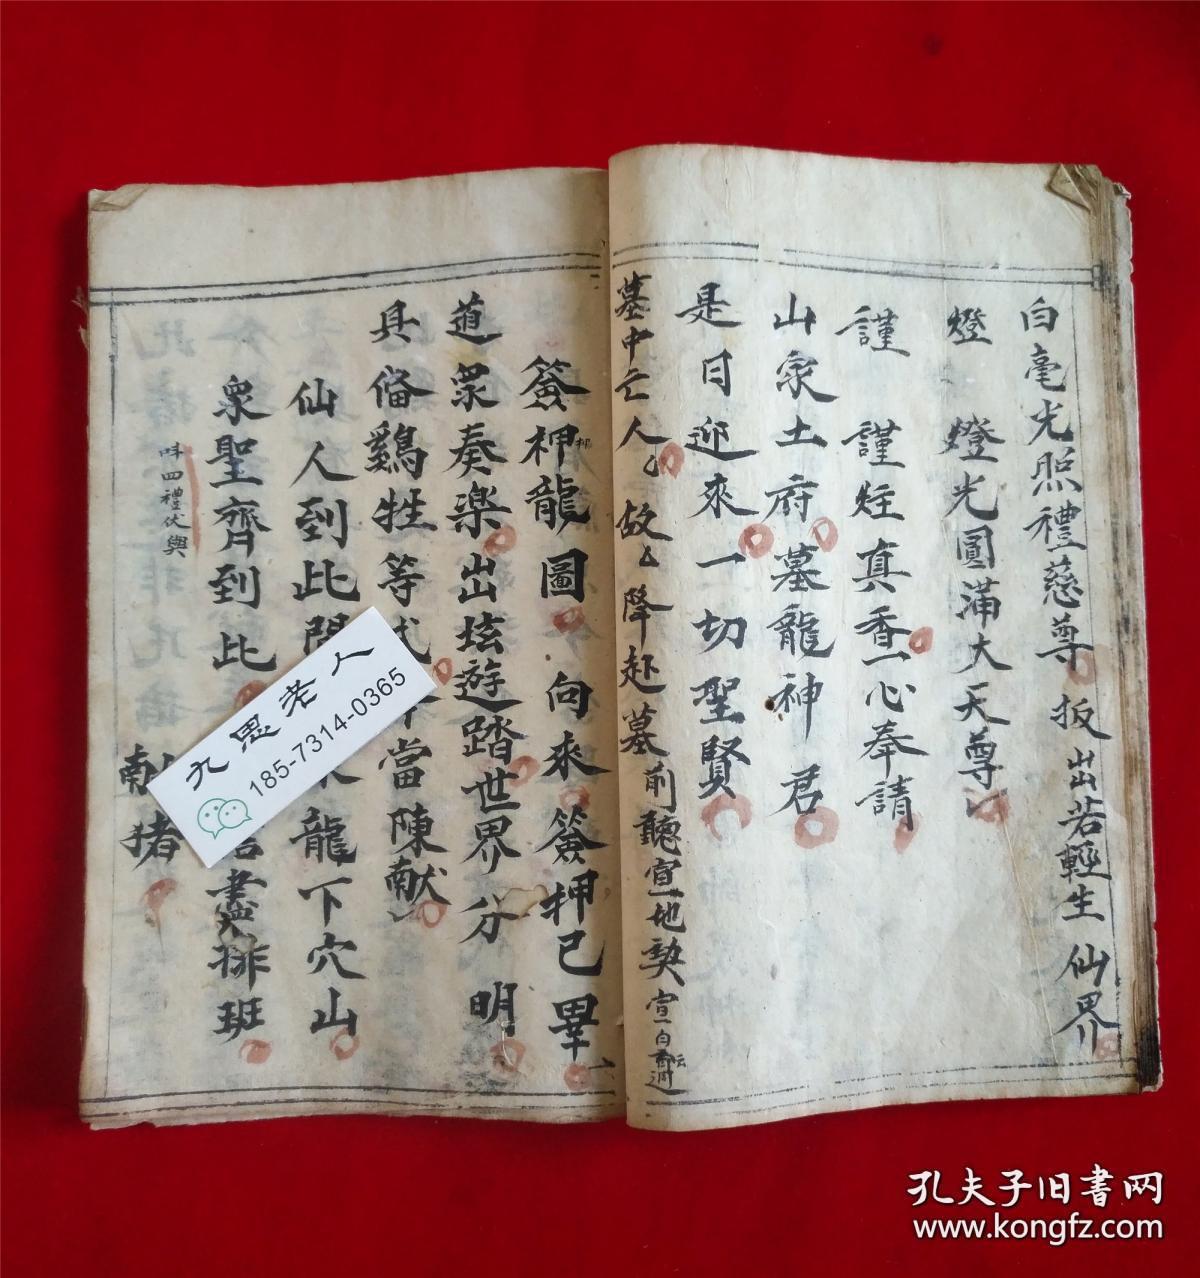 白毫光照禮慈尊 扳出若輕生 仙界
燈 燈光圓滿大天尊
謹 謹炷真香一心奉請
山家土府墓龍神君
是日迎來一切聖賢
墓中亡人 故 降赴墓前聽宣地契 宣白
簽押龍圖 向來簽押已畢
道眾奏樂出垓遊踏世界分明
具俻鷄牲等 當陳献
仙人到此 龍下穴山
衆聖齊到此 盡排班
呌四禮伏興
献猪
九思老人
185-7314-0365
孔夫子旧书网
www.kongfz.com